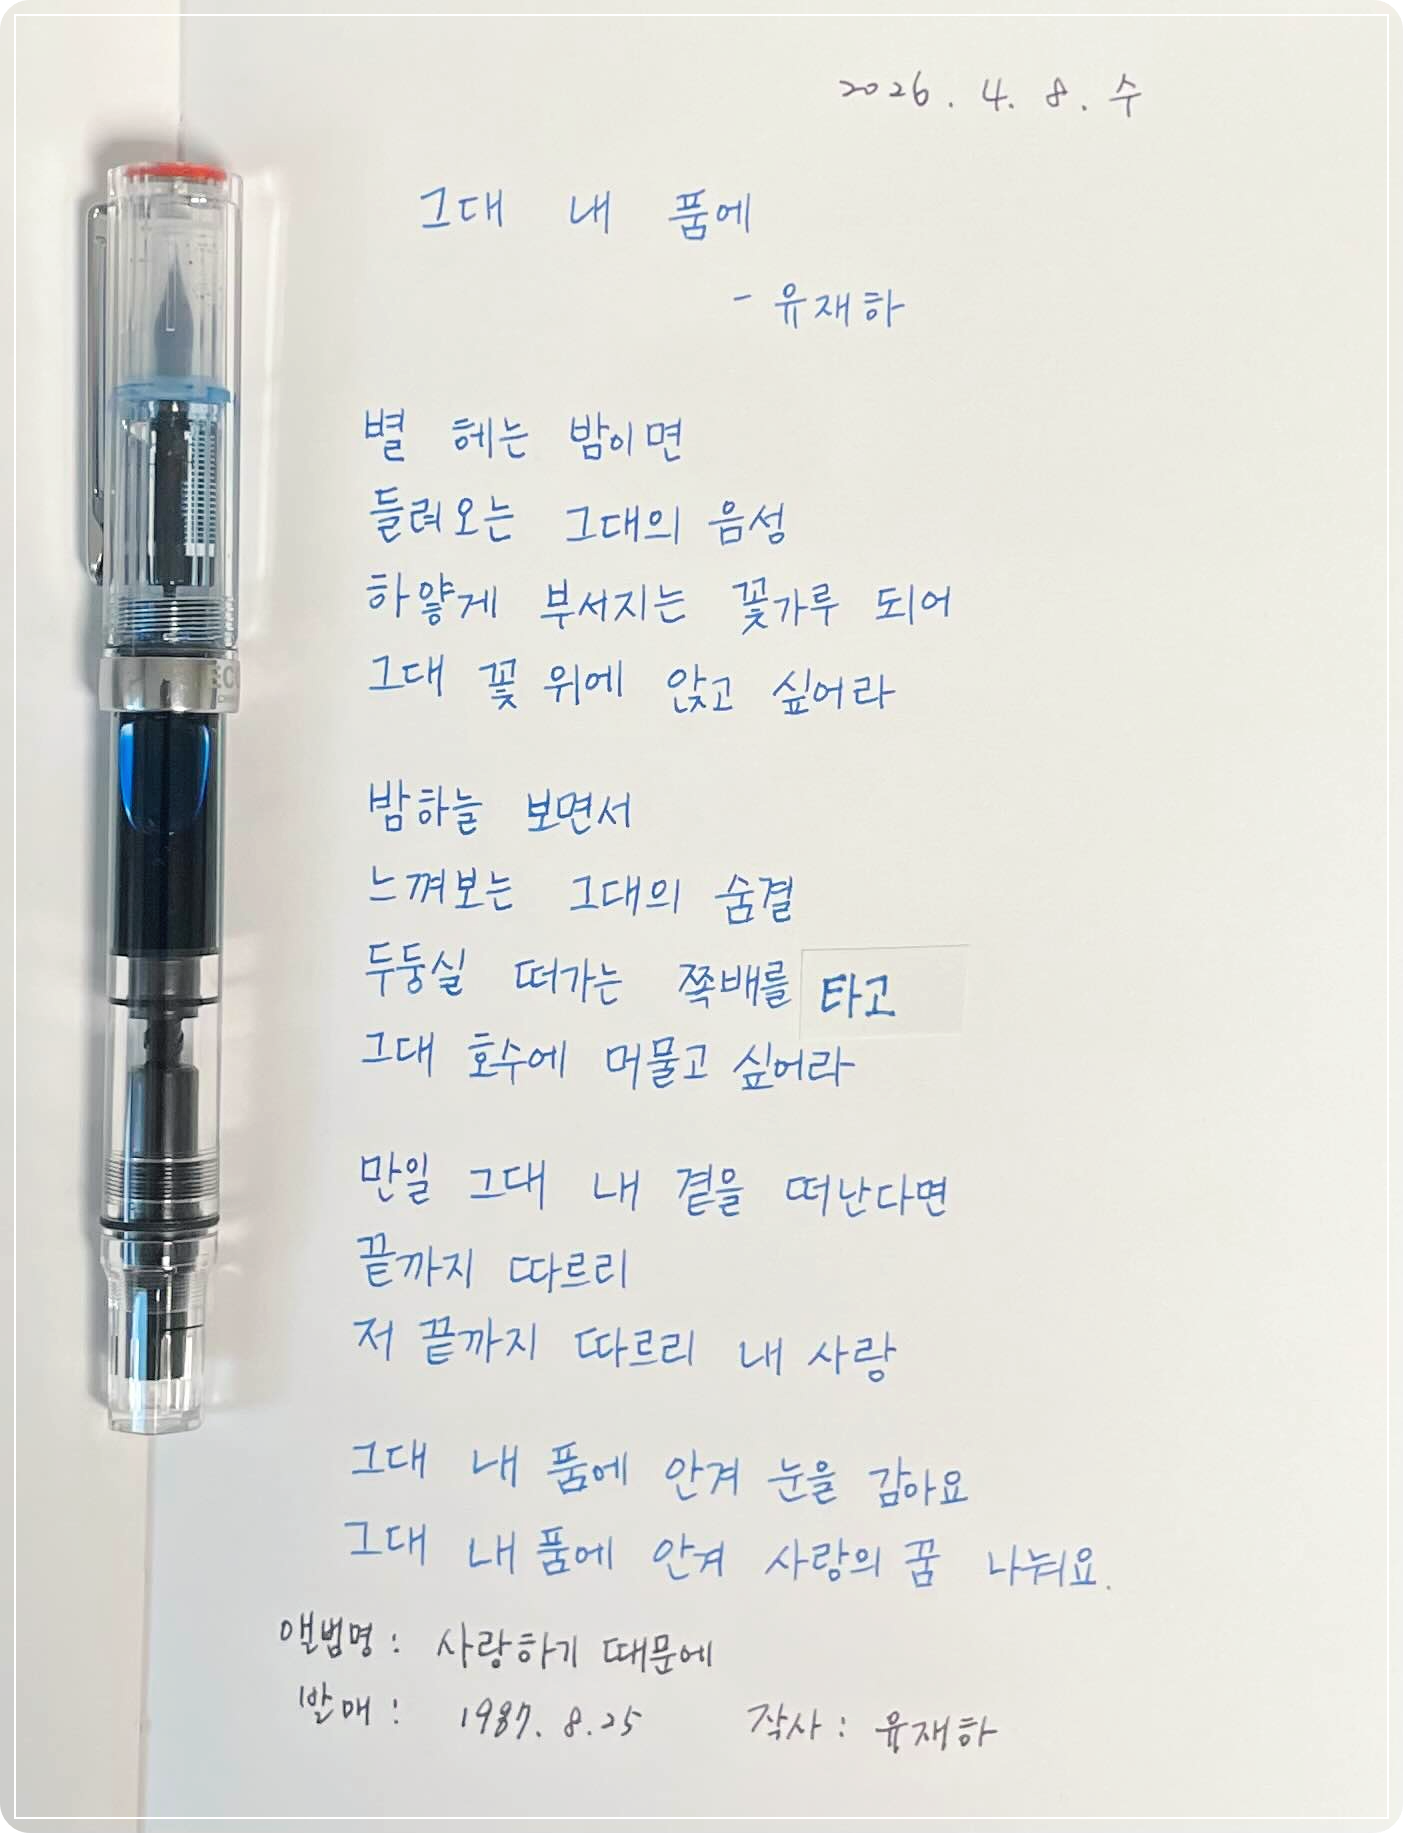 2026. 4. 8. 수
그대 내 품에
- 유재하
별 헤는 밤이면
들려오는 그대의 음성
하얗게 부서지는 꽃가루 되어
그대 꽃 위에 앉고 싶어라
밤하늘 보면서
느껴보는 그대의 숨결
두둥실 떠가는 쪽배를 타고
그대 호수에 머물고 싶어라
만일 그대 내 곁을 떠난다면
끝까지 따르리
저 끝까지 따르리 내 사랑
그대 내 품에 안겨 눈을 감아요
그대 내 품에 안겨 사랑의 꿈 나눠요.
앨범명: 사랑하기 때문에
발매: 1987. 8.25 작사: 유재하